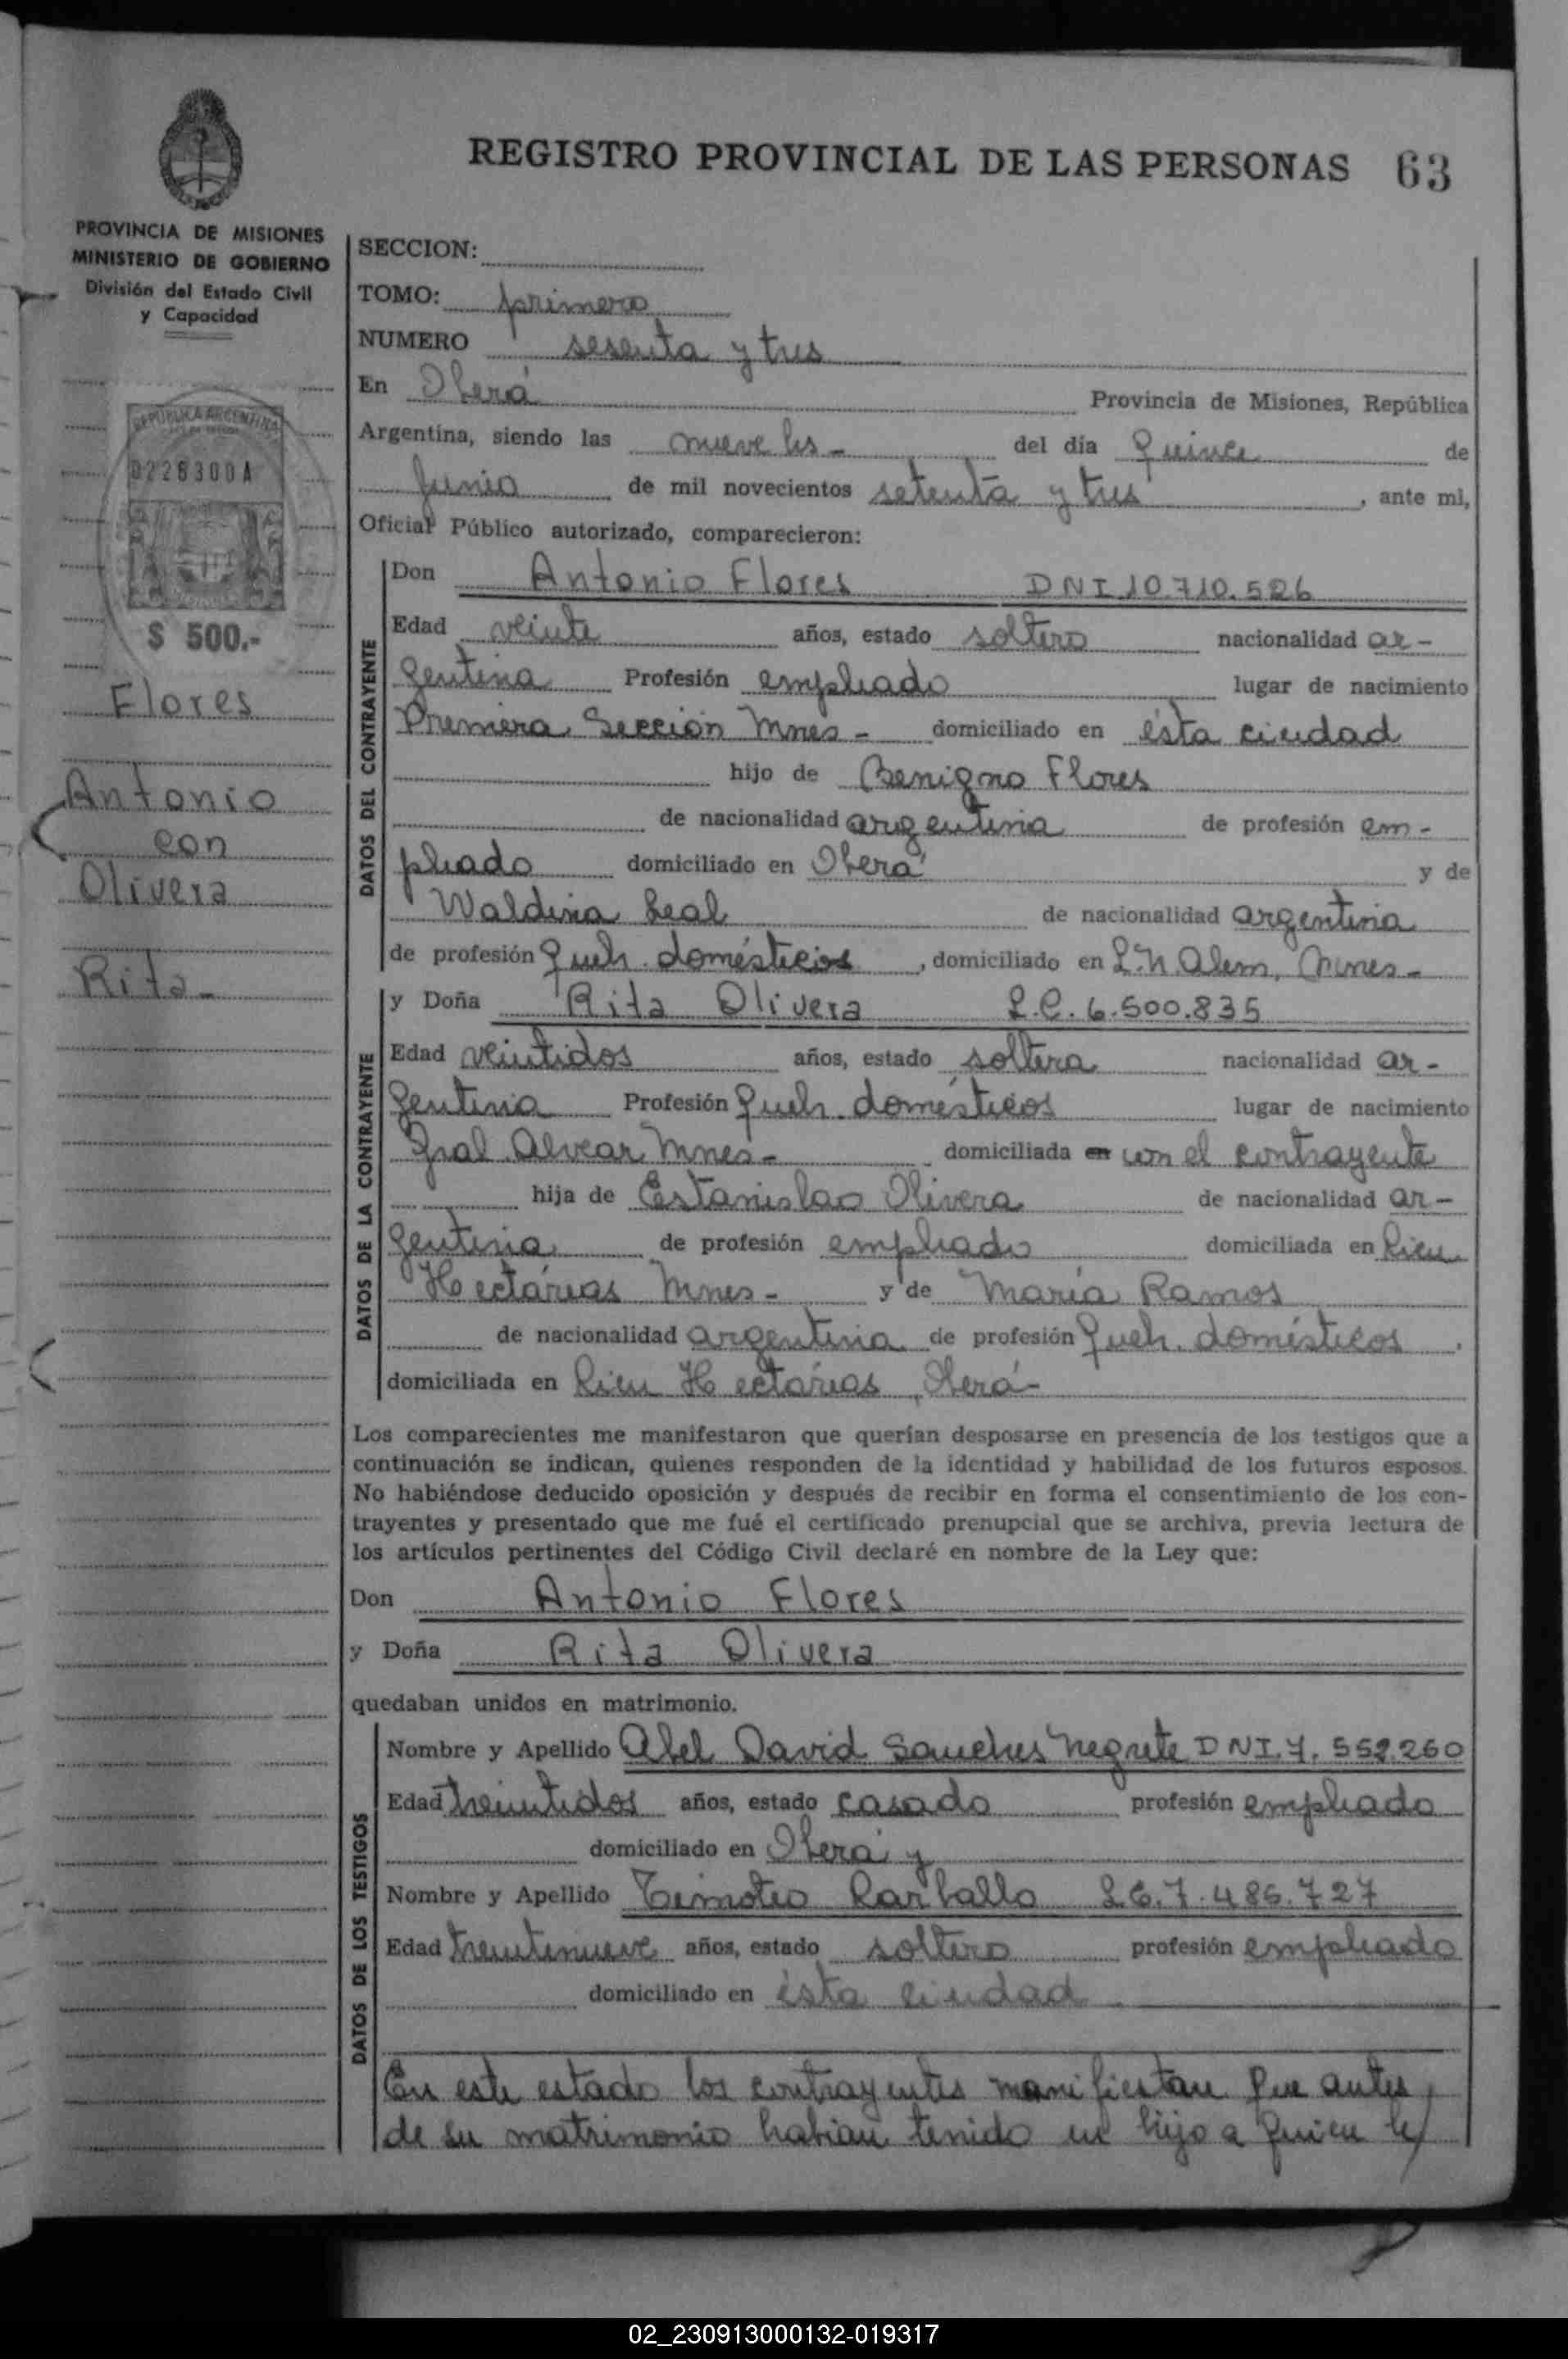 REGISTRO PROVINCIAL DE LAS PERSONAS 63
PROVINCIA DE MISIONES
MINISTERIO DE GOBIERNO
División del Estado Civil
y Capacidad
REPUBLICA ARGENTINA
0226300A
$ 500.-
Flores
Antonio
con
Olivera
Rita-
SECCION:
TOMO: primero
NUMERO sesenta y tres
En Oberá Provincia de Misiones, República
Argentina, siendo las nueve hs- del día Quince de
Junio de mil novecientos setenta y tres, ante mi,
Oficial Público autorizado, comparecieron:
DATOS DEL CONTRAYENTE
Don Antonio Flores DNI 10.710.526
Edad veinte años, estado soltero nacionalidad ar-
gentina Profesión empleado lugar de nacimiento
Primera Sección Mnes- domiciliado en ésta ciudad
hijo de Benigno Flores
de nacionalidad argentina de profesión em-
pleado domiciliado en Oberá y de
Waldina Leal de nacionalidad argentina
de profesión Queh. domésticos, domiciliado en L.N. Alem, Mnes-
DATOS DE LA CONTRAYENTE
y Doña Rita Olivera L.C. 6.500.835
Edad veintidos años, estado soltera nacionalidad ar-
gentina Profesión Queh. domésticos lugar de nacimiento
Gral Alvear Mnes- domiciliada en con el contrayente
hija de Estanislao Olivera de nacionalidad ar-
gentina de profesión empleado domiciliada en Cien
Hectáreas Mnes- y de María Ramos
de nacionalidad argentina de profesión Queh. domésticos,
domiciliada en Cien Hectáreas, Oberá-
Los comparecientes me manifestaron que querían desposarse en presencia de los testigos que a
continuación se indican, quienes responden de la identidad y habilidad de los futuros esposos.
No habiéndose deducido oposición y después de recibir en forma el consentimiento de los con-
trayentes y presentado que me fué el certificado prenupcial que se archiva, previa lectura de
los artículos pertinentes del Código Civil declaré en nombre de la Ley que:
Don Antonio Flores
y Doña Rita Olivera
quedaban unidos en matrimonio.
DATOS DE LOS TESTIGOS
Nombre y Apellido Abel David Sanches Negrete DNI 7.552.260
Edad treintidos años, estado casado profesión empleado
domiciliado en Oberá y
Nombre y Apellido Timoteo Carballo L.E. 7.486.727
Edad treintinueve años, estado soltero profesión empleado
domiciliado en ésta ciudad
En este estado los contrayentes manifiestan que antes
de su matrimonio habian tenido un hijo a quien le
02_230913000132-019317